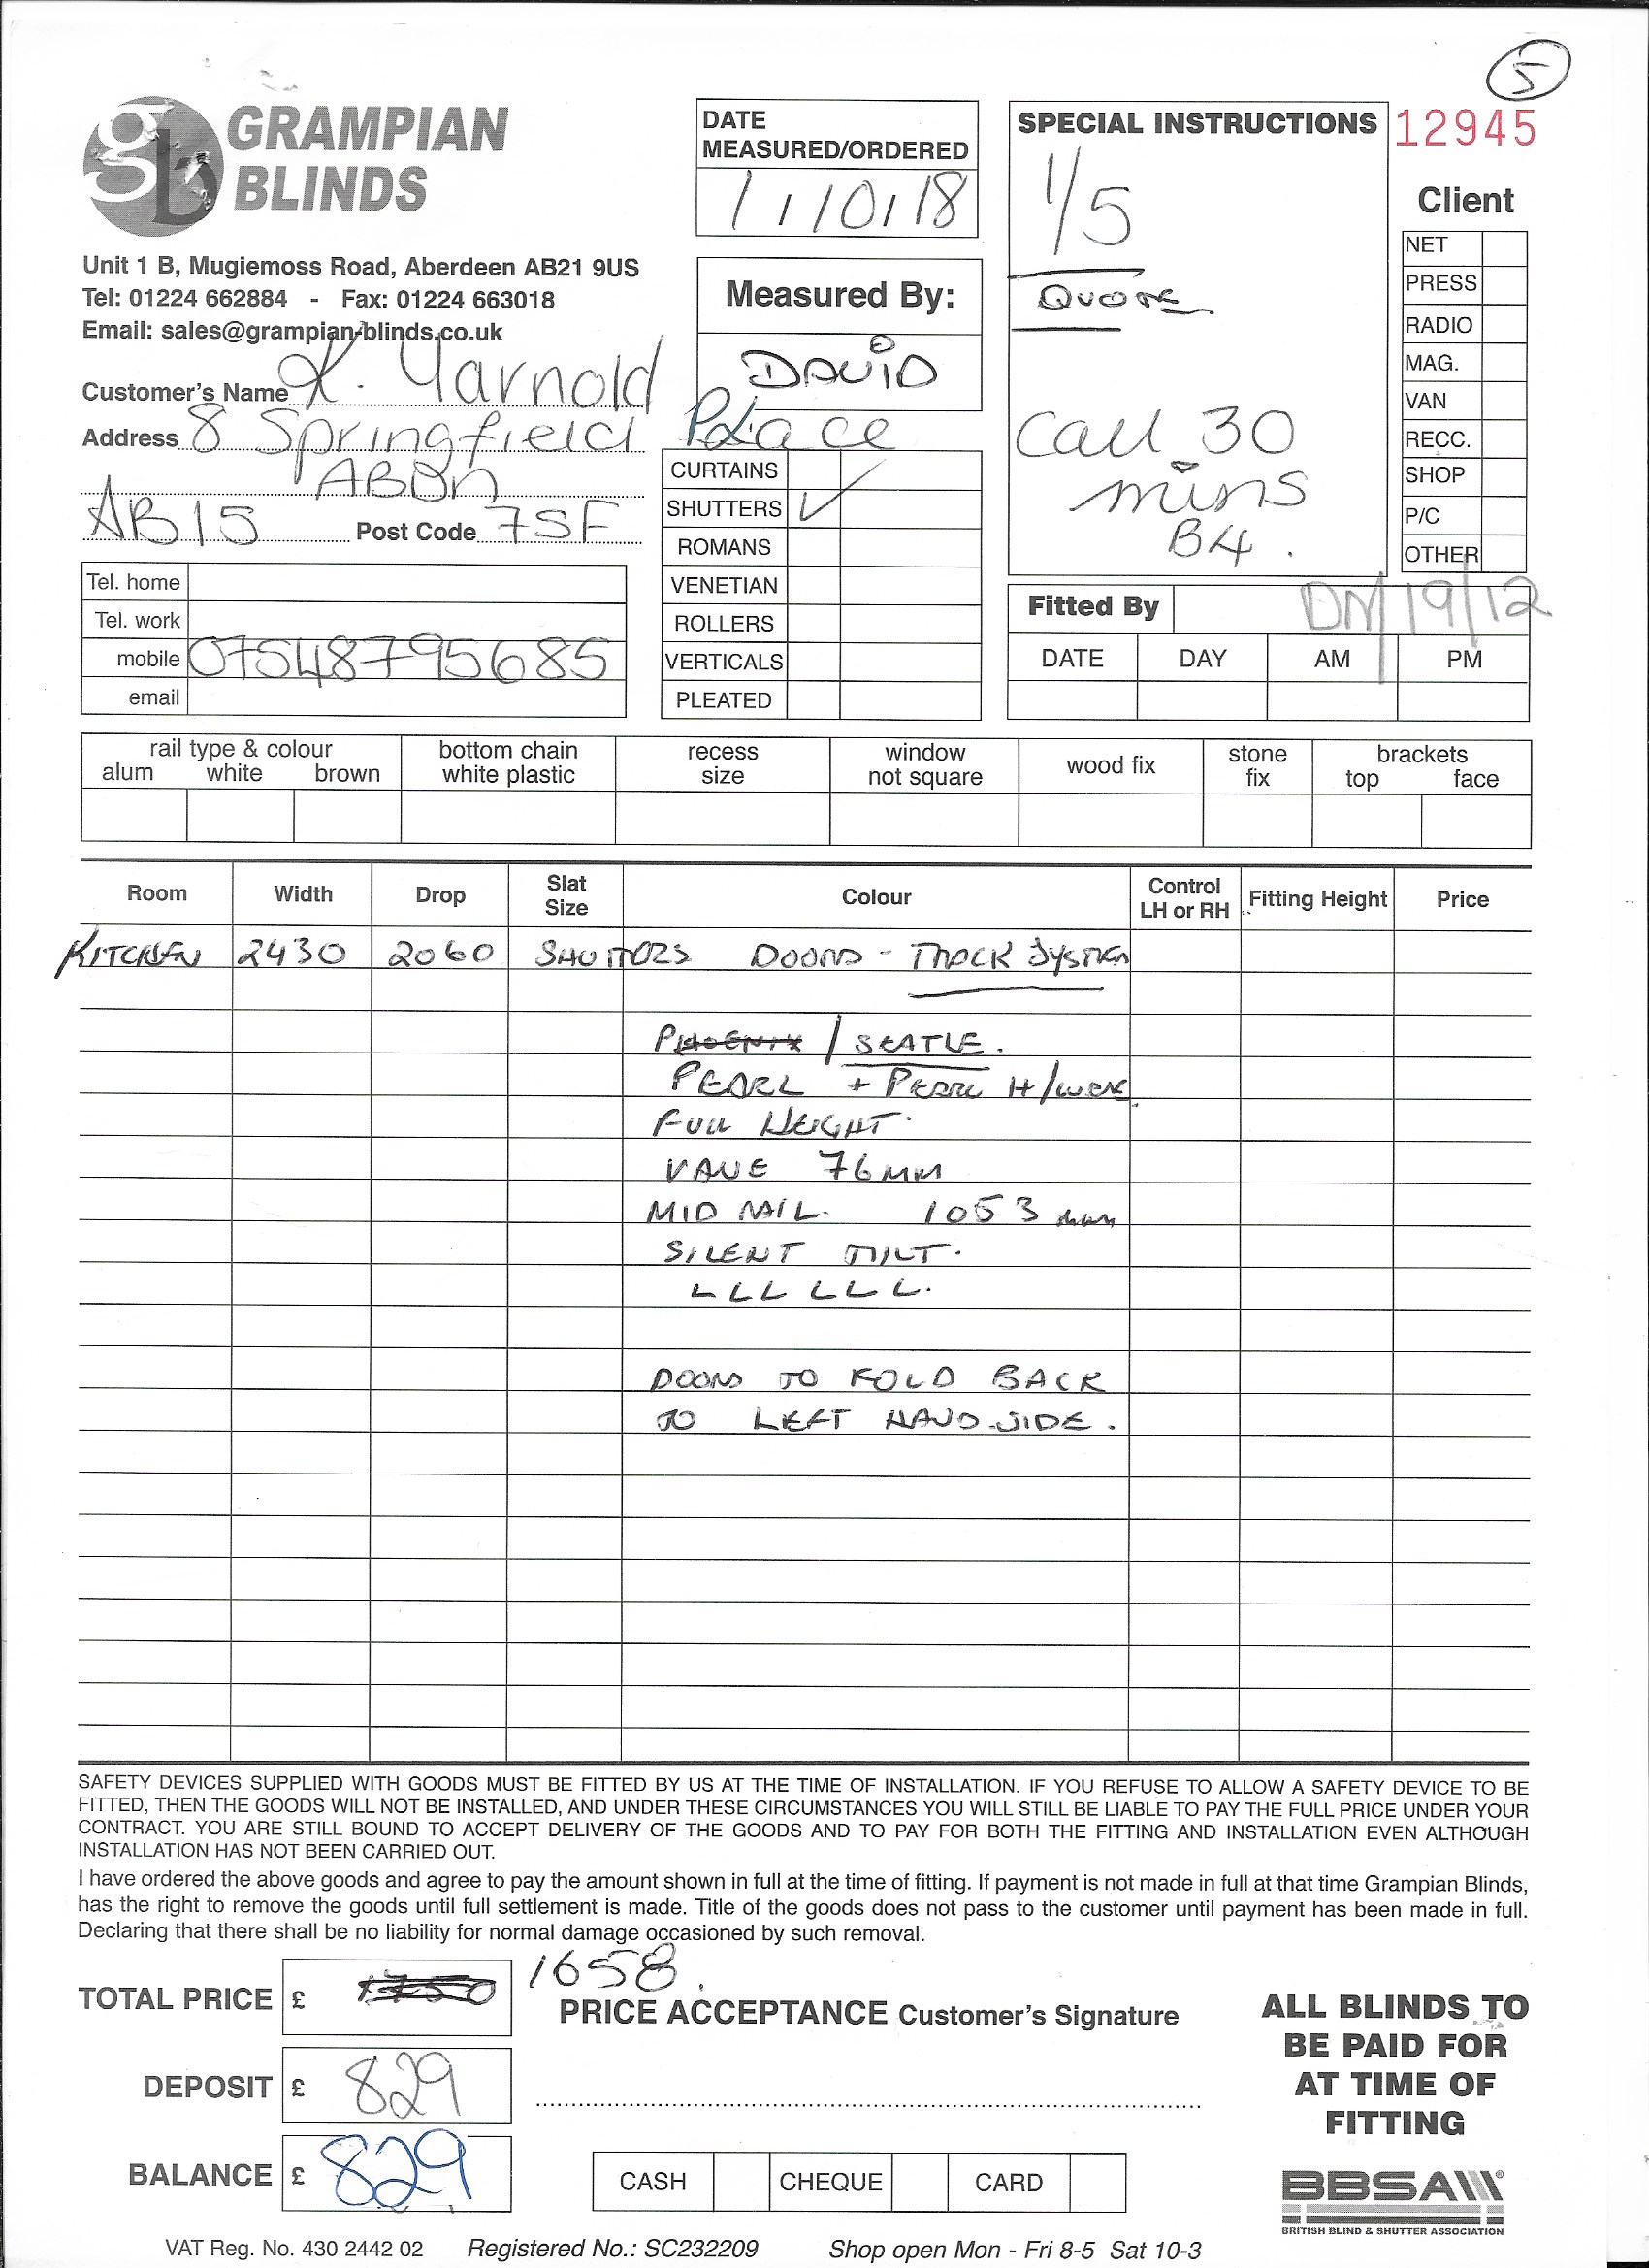 5
GRAMPIAN
BLINDS
Unit 1 B, Mugiemoss Road, Aberdeen AB21 9US
Tel: 01224 662884 - Fax: 01224 663018
Email: sales@grampian-blinds.co.uk
Customer's Name K. Yarnold
Address 8 Springfield Place
ABDN
AB15 Post Code 7SF
Tel. home
Tel. work
mobile 07548795685
email
DATE
MEASURED/ORDERED
1/10/18
Measured By:
DAViD
CURTAINS
SHUTTERS ✓
ROMANS
VENETIAN
ROLLERS
VERTICALS
PLEATED
SPECIAL INSTRUCTIONS
1/5
QUOTE
Call 30
mins
B4.
12945
Client
NET
PRESS
RADIO
MAG.
VAN
RECC.
SHOP
P/C
OTHER
Fitted By DN/19/12
DATE DAY AM PM
rail type & colour
alum white brown
bottom chain
white plastic
recess
size
window
not square
wood fix
stone
fix
brackets
top face
Room Width Drop Slat Size Colour Control LH or RH Fitting Height Price
KITCHEN 2430 2060 SHUTTERS DOORS - TRACK SYSTEM
PHOENIX / SEATLE.
PEARL + PEARL H/WARE
FULL HEIGHT.
VANE 76MM
MID RAIL. 1053 mm
SILENT TILT.
LLL LLL.
DOORS TO FOLD BACK
TO LEFT HAND SIDE.
SAFETY DEVICES SUPPLIED WITH GOODS MUST BE FITTED BY US AT THE TIME OF INSTALLATION. IF YOU REFUSE TO ALLOW A SAFETY DEVICE TO BE
FITTED, THEN THE GOODS WILL NOT BE INSTALLED, AND UNDER THESE CIRCUMSTANCES YOU WILL STILL BE LIABLE TO PAY THE FULL PRICE UNDER YOUR
CONTRACT. YOU ARE STILL BOUND TO ACCEPT DELIVERY OF THE GOODS AND TO PAY FOR BOTH THE FITTING AND INSTALLATION EVEN ALTHOUGH
INSTALLATION HAS NOT BEEN CARRIED OUT.
I have ordered the above goods and agree to pay the amount shown in full at the time of fitting. If payment is not made in full at that time Grampian Blinds,
has the right to remove the goods until full settlement is made. Title of the goods does not pass to the customer until payment has been made in full.
Declaring that there shall be no liability for normal damage occasioned by such removal.
TOTAL PRICE £ 1658.
DEPOSIT £ 829
BALANCE £ 829
PRICE ACCEPTANCE Customer's Signature
CASH CHEQUE CARD
ALL BLINDS TO
BE PAID FOR
AT TIME OF
FITTING
BBSA
BRITISH BLIND & SHUTTER ASSOCIATION
VAT Reg. No. 430 2442 02 Registered No.: SC232209 Shop open Mon - Fri 8-5 Sat 10-3